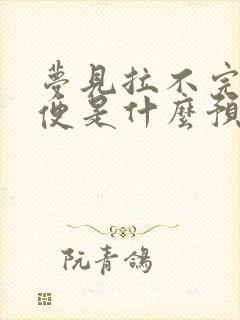 夢見拉不完
便是什麼預
阮青鴿